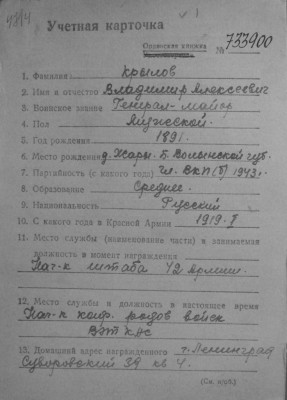 4894
Учетная карточка
Орденская книжка
№ 733900
1. Фамилия Крылов
2. Имя и отчество Владимир Алексеевич
3. Воинское звание Генерал-майор
4. Пол Мужской.
5. Год рождения 1891.
6. Место рождения д. Жары. Б. Волынской губ.
7. Партийность (с какого года) чл. ВКП(б) 1943 г.
8. Образование Среднее.
9. Национальность Русский
10. С какого года в Красной Армии 1919. г
11. Место службы (наименование части) и занимаемая
должность в момент награждения
Нач-к штаба 42 армии.
12. Место службы и должность в настоящее время
Нач-к каф. родов войск
13. Домашний адрес награжденного г. Ленинград
Суворовский 39 кв 4.
(См. н/об.)